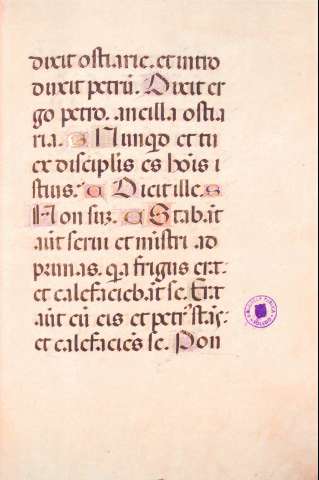 dixit ostiarie. et intro
duxit petrū. Dixit er
go petro. ancilla ostia
ria. s Nunqd et tu
ex disciplis es hōis i
stius. C Dicit ille. s
Non suz. C Stabāt
aūt serui et mīstri ad
prunas. qa frigus erat
et calefaciebāt se. Erat
aūt cū eis et petrꝰ stās
et calefaciēs se. Pon